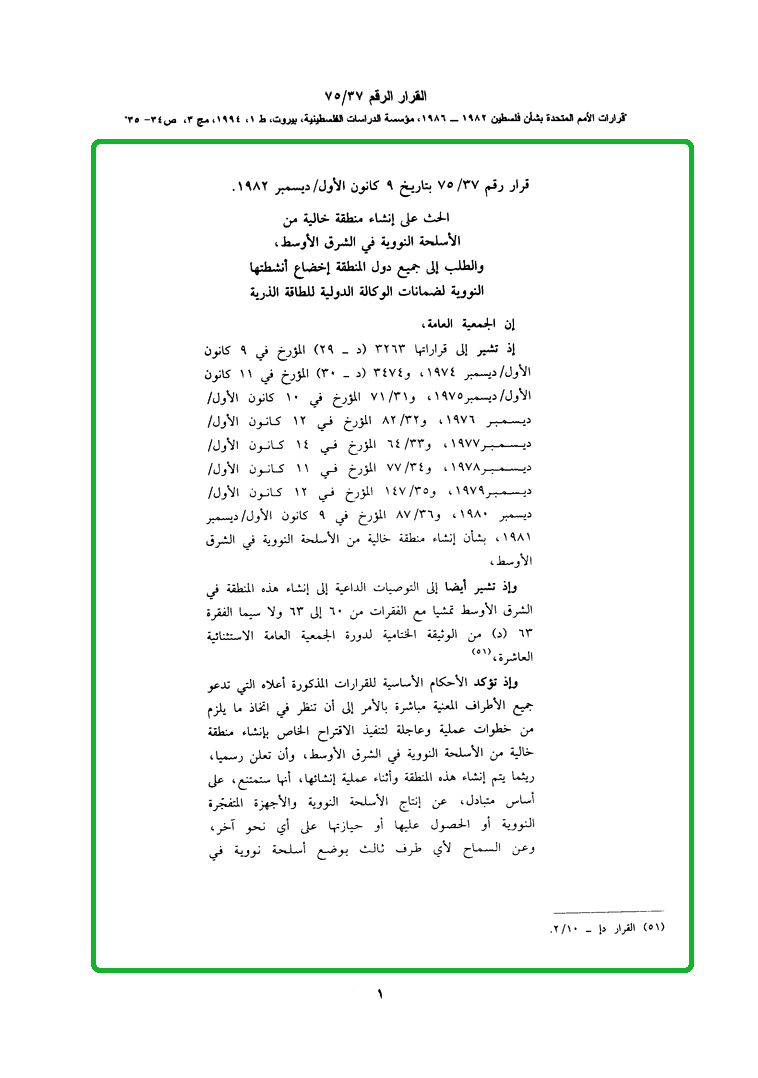 القرار الرقم ٧٥/٣٧
"قرارات الأمم المتحدة بشأن فلسطين ١٩٨٢ ــ ١٩٨٦، مؤسسة الدراسات الفلسطينية، بيروت، ط ١، ١٩٩٤، مج ٣، ص٣٤- ٣٥"
قرار رقم ٧٥/٣٧ بتاريخ ٩ كانون الأول/ديسمبر ١٩٨٢.
الحث على إنشاء منطقة خالية من
الأسلحة النووية في الشرق الأوسط،
والطلب إلى جميع دول المنطقة إخضاع أنشطتها
النووية لضمانات الوكالة الدولية للطاقة الذرية
إن الجمعية العامة،
إذ تشير إلى قراراتها ٣٢٦٣ (د ــ ٢٩) المؤرخ في ٩ كانون
الأول/ديسمبر ١٩٧٤، و٣٤٧٤ (د ــ ٣٠) المؤرخ في ١١ كانون
الأول/ديسمبر١٩٧٥، و٧١/٣١ المؤرخ في ١٠ كانون الأول/
ديسمبر ١٩٧٦، و٨٢/٣٢ المؤرخ في ١٢ كانون الأول/
ديسمبر١٩٧٧، و٦٤/٣٣ المؤرخ في ١٤ كانون الأول/
ديسمبر١٩٧٨، و٧٧/٣٤ المؤرخ في ١١ كانون الأول/
ديسمبر١٩٧٩، و١٤٧/٣٥ المؤرخ في ١٢ كانون الأول/
ديسمبر ١٩٨٠، و٨٧/٣٦ المؤرخ في ٩ كانون الأول/ديسمبر
١٩٨١، بشأن إنشاء منطقة خالية من الأسلحة النووية في الشرق
الأوسط،
وإذ تشير أيضا إلى التوصيات الداعية إلى إنشاء هذه المنطقة في
الشرق الأوسط تمشيا مع الفقرات من ٦٠ إلى ٦٣ ولا سيما الفقرة
٦٣ (د) من الوثيقة الختامية لدورة الجمعية العامة الاستثنائية
العاشرة،(٥١)
وإذ تؤكد الأحكام الأساسية للقرارات المذكورة أعلاه التي تدعو
جميع الأطراف المعنية مباشرة بالأمر إلى أن تنظر في اتخاذ ما يلزم
من خطوات عملية وعاجلة لتنفيذ الاقتراح الخاص بإنشاء منطقة
خالية من الأسلحة النووية في الشرق الأوسط، وأن تعلن رسميا،
ريثما يتم إنشاء هذه المنطقة وأثناء عملية إنشائها، أنها ستمتنع، على
أساس متبادل، عن إنتاج الأسلحة النووية والأجهزة المتفجّرة
النووية أو الحصول عليها أو حيازتها على أي نحو آخر،
وعن السماح لأي طرف ثالث بوضع أسلحة نووية في
(٥١) القرار دإ ــ ٢/١٠.
١